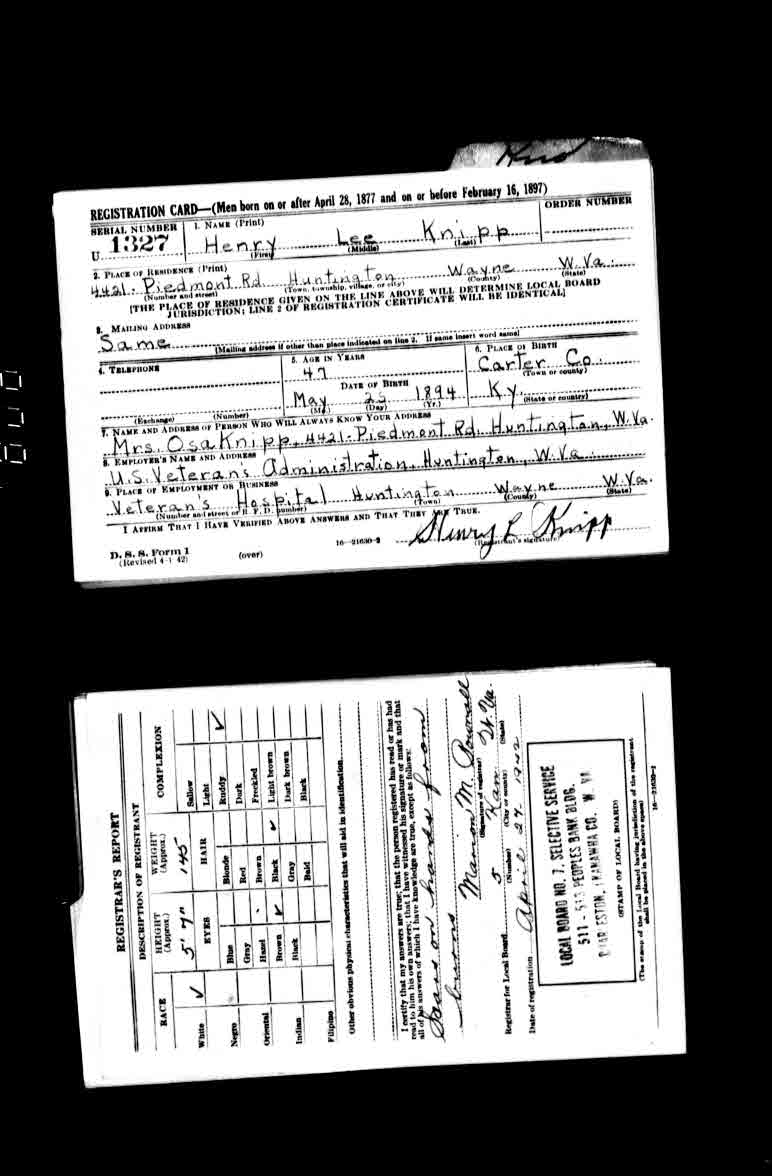 REGISTRATION CARD—(Men born on or after April 28, 1877 and on or before February 16, 1897)
SERIAL NUMBER 1. NAME (Print) ORDER NUMBER
U 1327 Henry Lee Knipp
(First) (Middle) (Last)
2. PLACE OF RESIDENCE (Print)
4421 - Piedmont Rd. Huntington Wayne W. Va.
(Number and street) (Town, township, village, or city) (County) (State)
[THE PLACE OF RESIDENCE GIVEN ON THE LINE ABOVE WILL DETERMINE LOCAL BOARD
JURISDICTION; LINE 2 OF REGISTRATION CERTIFICATE WILL BE IDENTICAL]
3. MAILING ADDRESS
Same
[Mailing address if other than place indicated on line 2. If same insert word same]
4. TELEPHONE 5. AGE IN YEARS 6. PLACE OF BIRTH
47 Carter Co.
(Town or county)
DATE OF BIRTH
May 1894 Ky.
(Exchange) (Number) (Mo.) (Day) (Yr.) (State or country)
7. NAME AND ADDRESS OF PERSON WHO WILL ALWAYS KNOW YOUR ADDRESS
Mrs. Osa Knipp, 4421 - Piedmont Rd. Huntington, W. Va.
8. EMPLOYER'S NAME AND ADDRESS
U.S. Veteran's Administration, Huntington, W. Va.
9. PLACE OF EMPLOYMENT OR BUSINESS
Veteran's Hospital Huntington Wayne W. Va.
(Number and street or R. F. D. number) (Town) (County) (State)
I AFFIRM THAT I HAVE VERIFIED ABOVE ANSWERS AND THAT THEY ARE TRUE.
Henry L Knipp
D. S. S. Form 1 16—21630-2 (Registrant's signature)
(Revised 4-1-42) (over)
REGISTRAR'S REPORT
DESCRIPTION OF REGISTRANT
RACE HEIGHT (Approx.) WEIGHT (Approx.) COMPLEXION
5' 7" 145
EYES HAIR
White ✓ Sallow
Light
Blue Blonde Ruddy ✓
Negro Gray Red Dark
Hazel Brown Freckled
Oriental Brown ✓ Black ✓ Light brown
Indian Black Gray Dark brown
Bald Black
Filipino
Other obvious physical characteristics that will aid in identification
I certify that my answers are true; that the person registered has read or has had
read to him his own answers; that I have witnessed his signature or mark and that
all of his answers of which I have knowledge are true, except as follows:
Scars on hands from
burns
Marion M.
(Signature of registrar)
Registrar for Local Board 5 Kan W. Va.
(Number) (City or county) (State)
Date of registration April 27 - 1942
LOCAL BOARD NO. 7, SELECTIVE SERVICE
511 - 513 PEOPLES BANK BLDG.
CHARLESTON, KANAWHA CO. W. VA
(STAMP OF LOCAL BOARD)
(The stamp of the Local Board having jurisdiction of the registrant
shall be placed in the above space)
16—21630-2